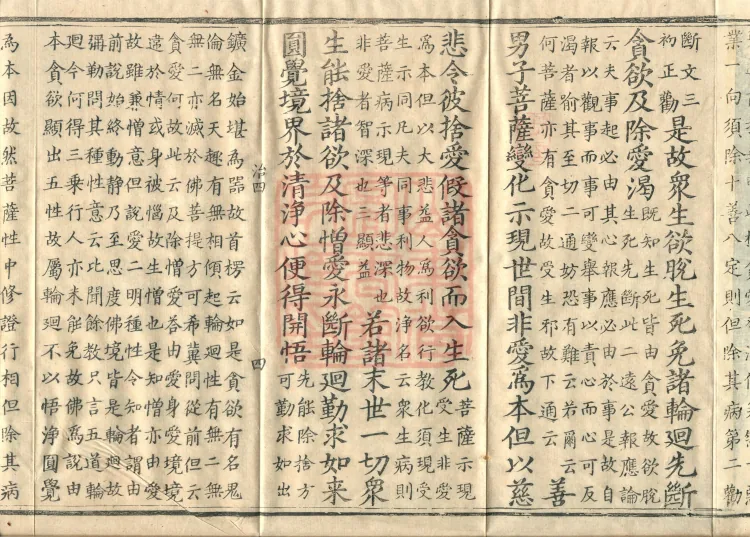 業一向須除十善八定則但除其病第二勸
斷文三
初正勸
是故眾生欲脫生死免諸輪迴先斷
貪欲及除愛渴
既知生死皆由貪愛故欲脫
生死先斷此二遠公報應論
云夫事起必由其心報應必由於事是故自
報以觀事而事可變舉事以責心而心可反
渴者喻其至切二通妨恐有難云若爾云
何菩薩亦有貪愛故受生邪故下通云
善
男子菩薩變化示現世間非愛為本但以慈
悲令彼捨愛假諸貪欲而入生死
菩薩示現
受生非愛
為本但以大悲益人為利欲行教化須現受
生示同凡夫同事利物故淨名云眾生病則
菩薩病示現等者悲深也
非愛者智深也三顯益
若諸末世一切眾
生能捨諸欲及除憎愛永斷輪迴勤求如来
圓覺境界於清淨心便得開悟
先能除捨方
可勤求如出
治四
四
鑛金始堪為器故首楞云如是貪欲有名鬼
倫無名天趣有無相傾起輪迴性有無二無
無二亦滅於佛菩提方可希冀問從前但云
貪愛何故此云及除憎愛荅由愛身愛境境
違於情或身被惱故生憎也是知憎亦由愛
故雖兼憎意但說愛二明種性令知者謂由
前說始終動靜乃至思度佛境皆是輪迴故
彌勒問其種性意云此聞餘教只言五道輪
迴今何得三乗行人亦未能免故佛為說由
本貪欲顯出五種性故屬輪迴不以悟淨圓覺
為本因故然菩薩性中修證行相但除其病